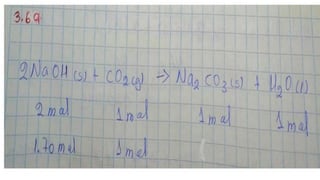 3.69
2NaOH(s) + CO2(g) → Na2CO3(s) + H2O(l)
2 mol 1 mol 1 mol 1 mol
1.70 mol 1 mol